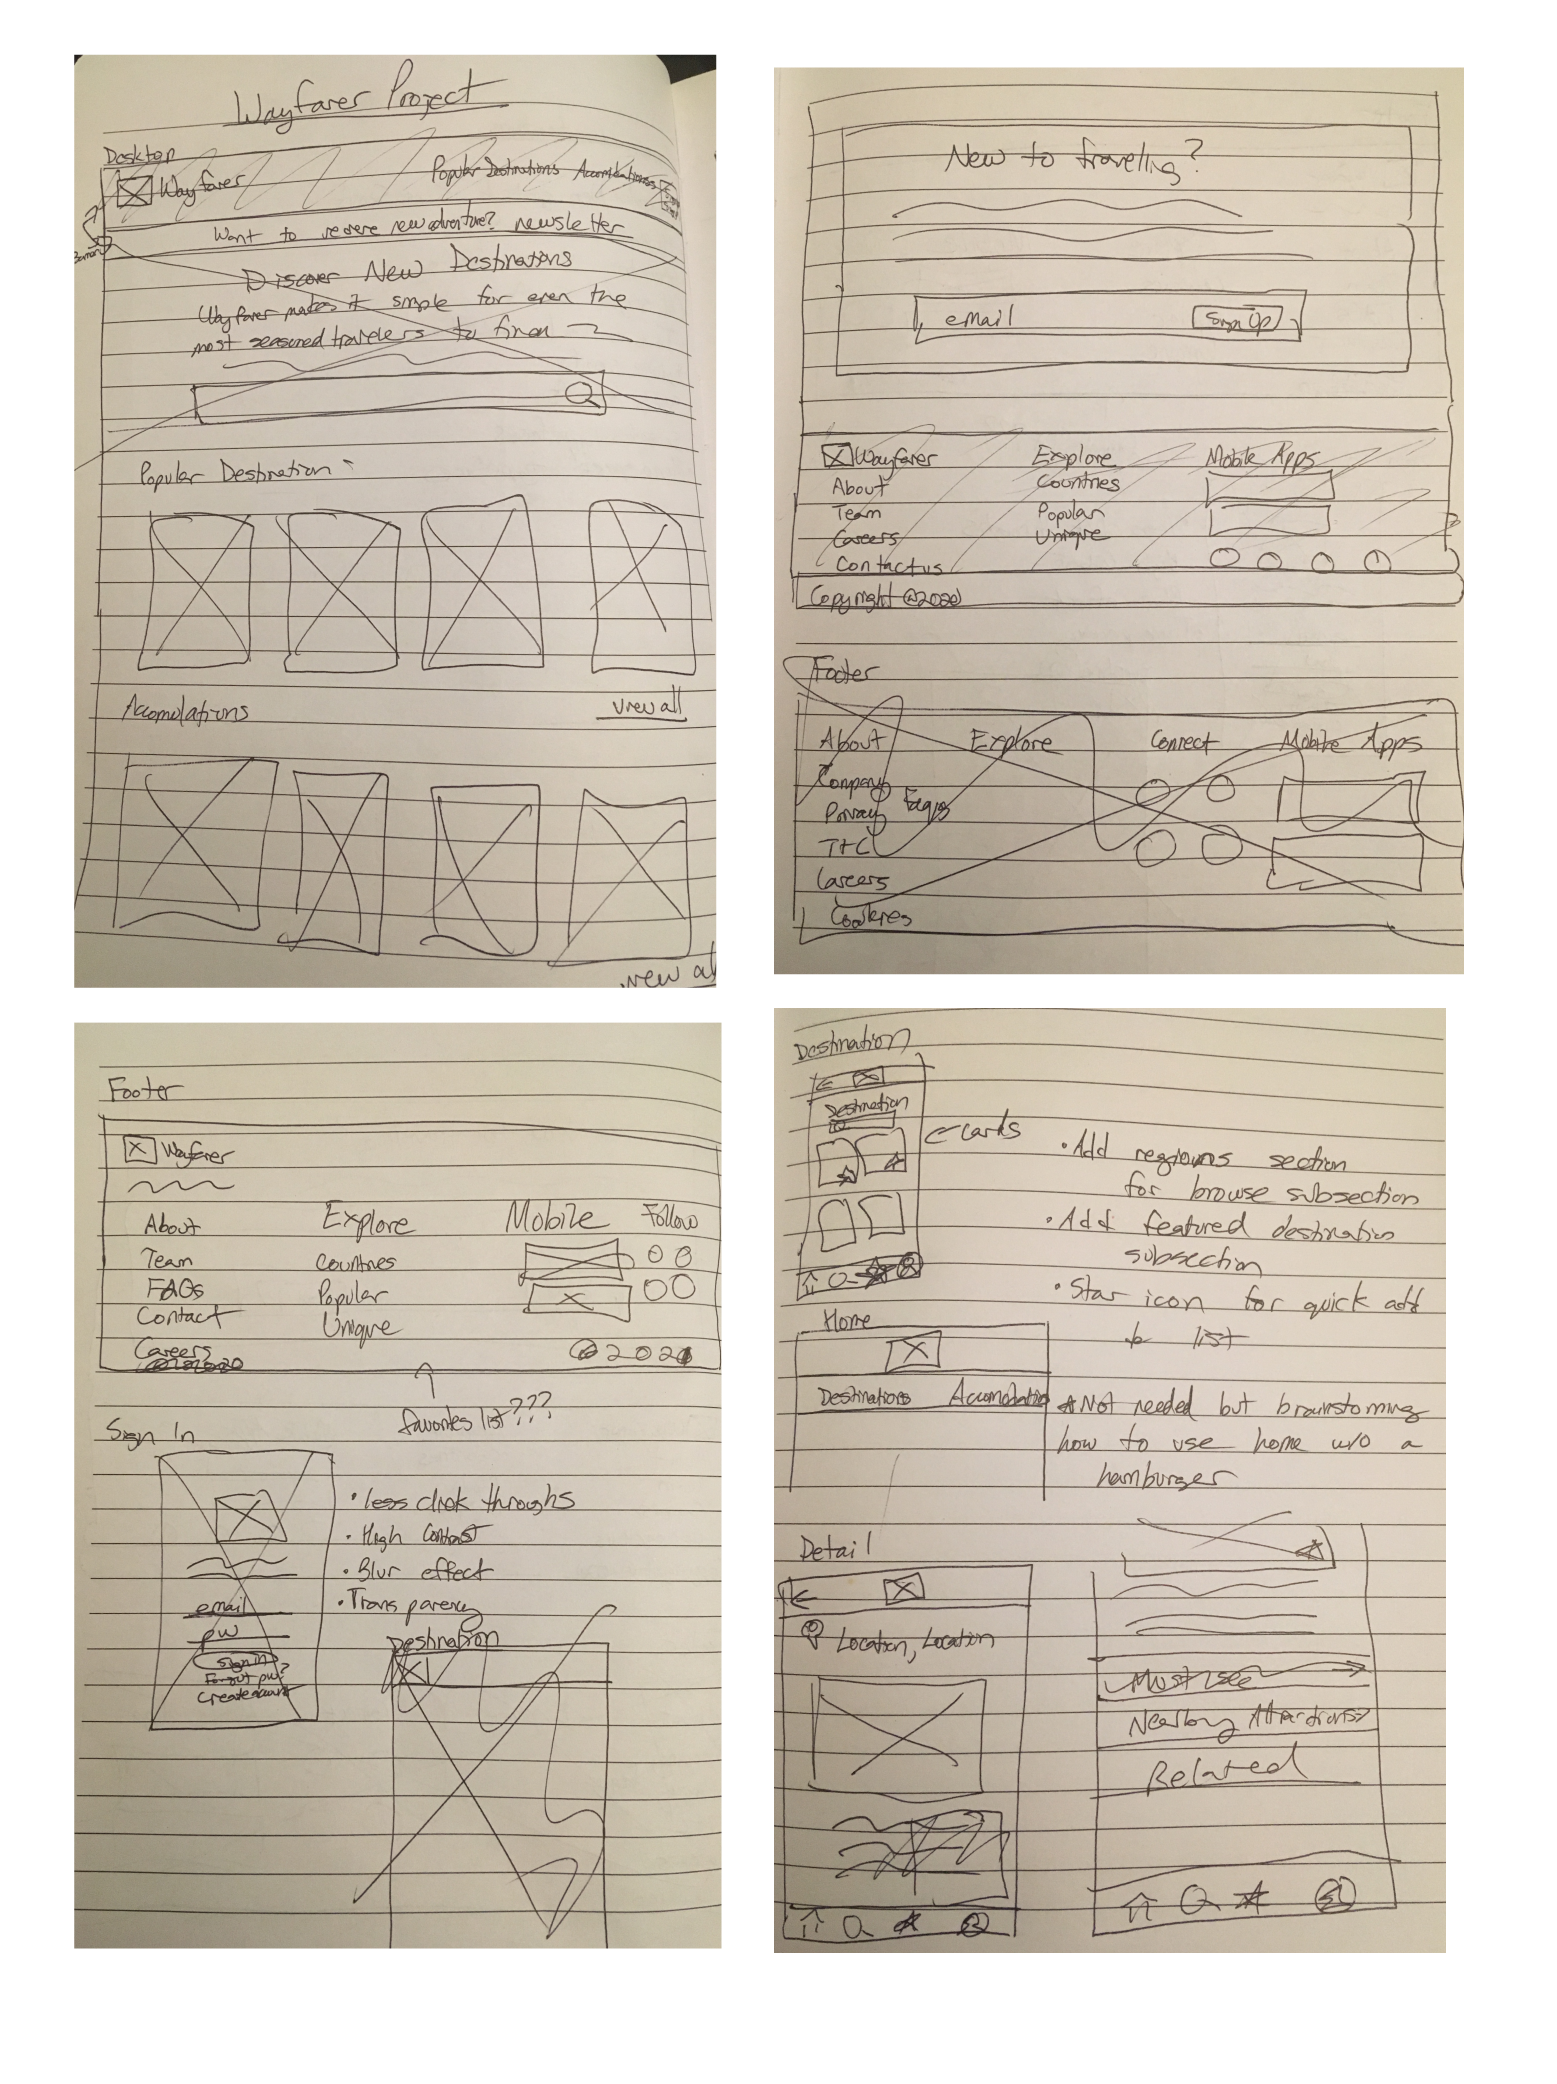 Wayfarer Project
Desktop
Wayfarer Popular Destinations Accomodations
Want to receive new adventure? newsletter
Discover New Destinations
Wayfarer makes it simple for even the
most seasoned travelers to
Popular Destination
Accomodations view all
view al
New to traveling?
email Sign Up
Wayfarer Explore Mobile Apps
About Countries
Team Popular
Careers Unique
Contact us
Copyright @2020
Footer
About Explore Connect Mobile Apps
Company
Privacy Faqs
T+C
Careers
Cookies
Footer
Wayfarer
About Explore Mobile Follow
Team Countries
FAQs Popular
Contact Unique
Careers
©2021
favorites list???
Sign In
• less click throughs
• High Contrast
• Blur effect
• Transparency
email
pw
sign in
Forgot pw?
Create account
Destination
Destination
Destination
← Cards
• Add regions section
for browse subsection
• Add featured destination
subsection
• Star icon for quick add
to list
Home
Destinations Accomodatio
* Not needed but brainstorming
how to use home w/o a
hamburger
Detail
Location, Location
Must see
Nearby Attractions>
Related